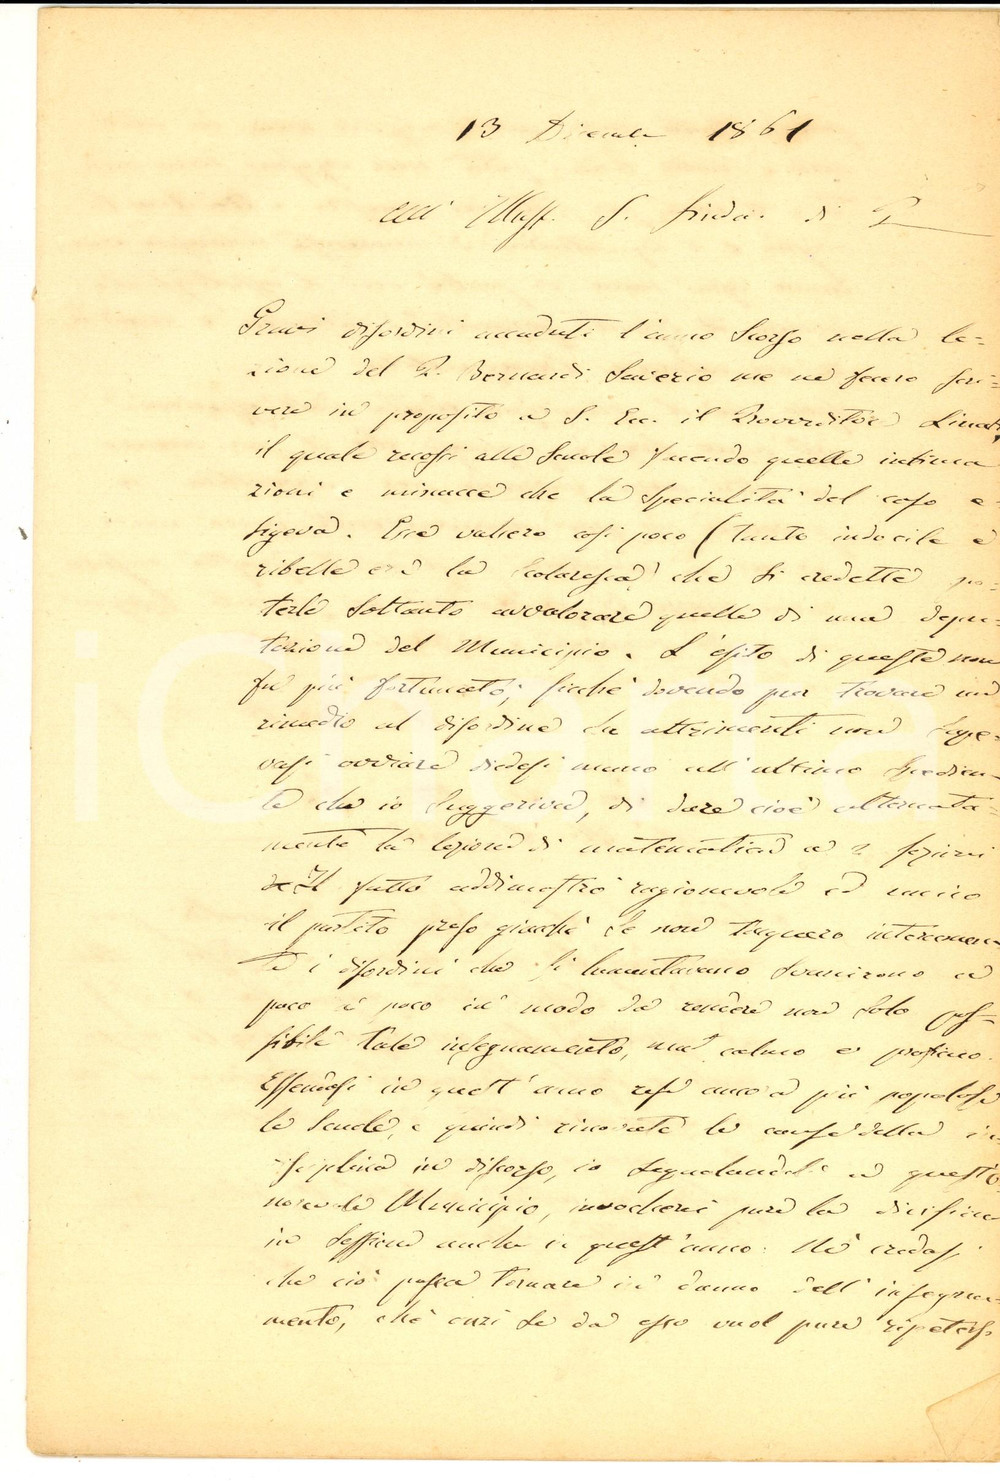 13 Dicembre 1861
All' Illus. S. Sindaco. di P
Gravi disordini accaduti l'anno scorso nella le-
zione del P. Bernardi Saverio me ne fecero scri-
vere in proposito a S. Ecc. il Provveditore Linati
il quale recossi alle scuole facendo quelle intima
zioni e minacce che la specialità del caso e-
sigeva. Esse valsero così poco (tanto indocile e
ribelle era la scolaresca) che si credette po-
terle soltanto avvalorare quelle di una depu-
tazione del Municipio. L'esito di queste non
fu più fortunato; sicché dovendo pur trovare un
rimedio al disordine che altrimenti non sape-
vasi ovviare diedesi mano all'ultimo spedien-
te che io suggeriva, di dare cioè alternata-
mente la lezione di matematica a 2 sezioni
Il fatto addimostrò ragionevole ed unico
il partito preso giacché se non tacquero interamen-
te i disordini che si lamentavano svanirono a
poco a poco in modo da rendere non solo pos-
sibile tale insegnamento, ma calmo e proficuo.
Essendosi in quest'anno resa ancora più popolosa
le scuole, e quindi rinovate le cause della in-
disciplina in discorso, io segnalandole a quest'o-
norevole Municipio, invocherei pure la divisione
in sessioni anche in quest'anno. Né credasi
che ciò possa tornare in danno dell'insegna-
mento, ché anzi se da esso vuol pure ripetersi